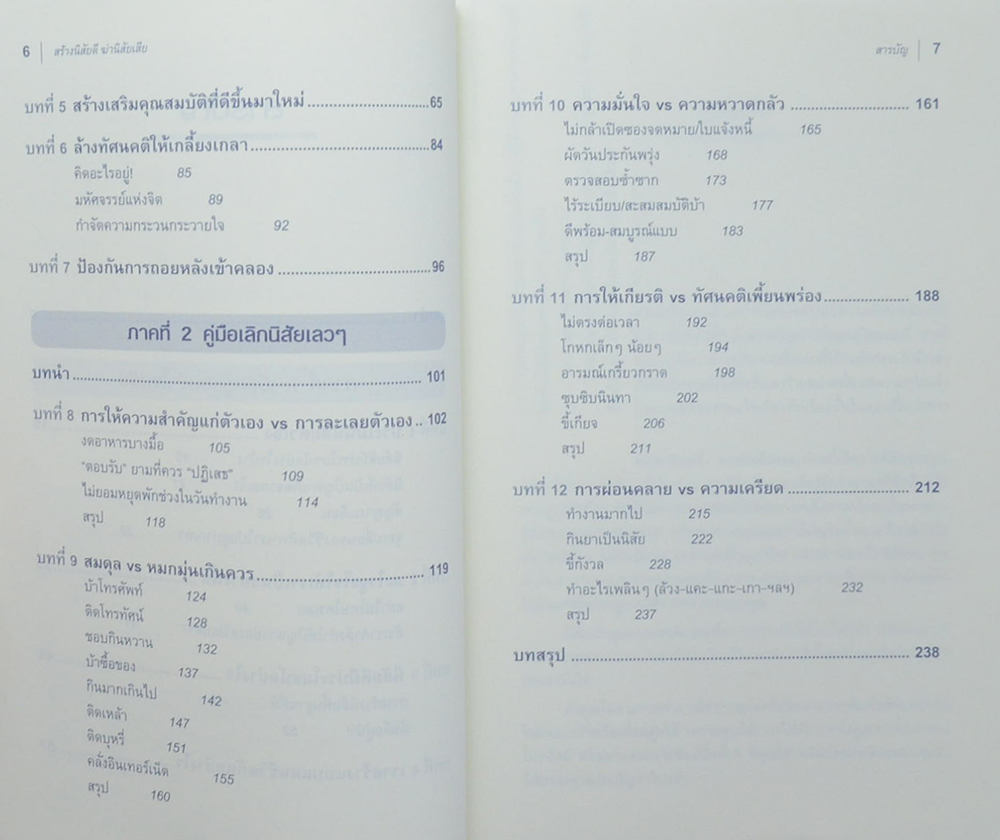 6 | สร้างนิสัยดี ฆ่านิสัยเสีย
บทที่ 5 สร้างเสริมคุณสมบัติที่ดีขึ้นมาใหม่ ..............................65
บทที่ 6 ล้างทัศนคติให้เกลี้ยงเกลา ..........................................84
คิดอะไรอยู่! 85
มหัศจรรย์แห่งจิต 89
กำจัดความกระวนกระวายใจ 92
บทที่ 7 ป้องกันการถอยหลังเข้าคลอง ....................................96
ภาคที่ 2 คู่มือเลิกนิสัยเลวๆ
บทนำ ............................................................................... 101
บทที่ 8 การให้ความสำคัญแก่ตัวเอง vs การละเลยตัวเอง .. 102
งดอาหารบางมื้อ 105
"ตอบรับ" ยามที่ควร "ปฏิเสธ" 109
ไม่ยอมหยุดพักช่วงในวันทำงาน 114
สรุป 118
บทที่ 9 สมดุล vs หมกมุ่นเกินควร ........................................ 119
บ้าโทรศัพท์ 124
ติดโทรทัศน์ 128
ชอบกินหวาน 132
บ้าซื้อของ 137
กินมากเกินไป 142
ติดเหล้า 147
ติดบุหรี่ 151
คลั่งอินเทอร์เน็ต 155
สรุป 160
สารบัญ | 7
บทที่ 10 ความมั่นใจ vs ความหวาดกลัว ............................. 161
ไม่กล้าเปิดซองจดหมาย/ใบแจ้งหนี้ 165
ผัดวันประกันพรุ่ง 168
ตรวจสอบซ้ำซาก 173
ไร้ระเบียบ/สะสมสมบัติบ้า 177
ดีพร้อม-สมบูรณ์แบบ 183
สรุป 187
บทที่ 11 การให้เกียรติ vs ทัศนคติเพี้ยนพร่อง..................... 188
ไม่ตรงต่อเวลา 192
โกหกเล็กๆ น้อยๆ 194
อารมณ์เกรี้ยวกราด 198
ซุบซิบนินทา 202
ขี้เกียจ 206
สรุป 211
บทที่ 12 การผ่อนคลาย vs ความเครียด .............................. 212
ทำงานมากไป 215
กินยาเป็นนิสัย 222
ขี้กังวล 228
ทำอะไรเพลินๆ (ล้วง-แคะ-แกะ-เกา-ฯลฯ) 232
สรุป 237
บทสรุป ................................................................................ 238